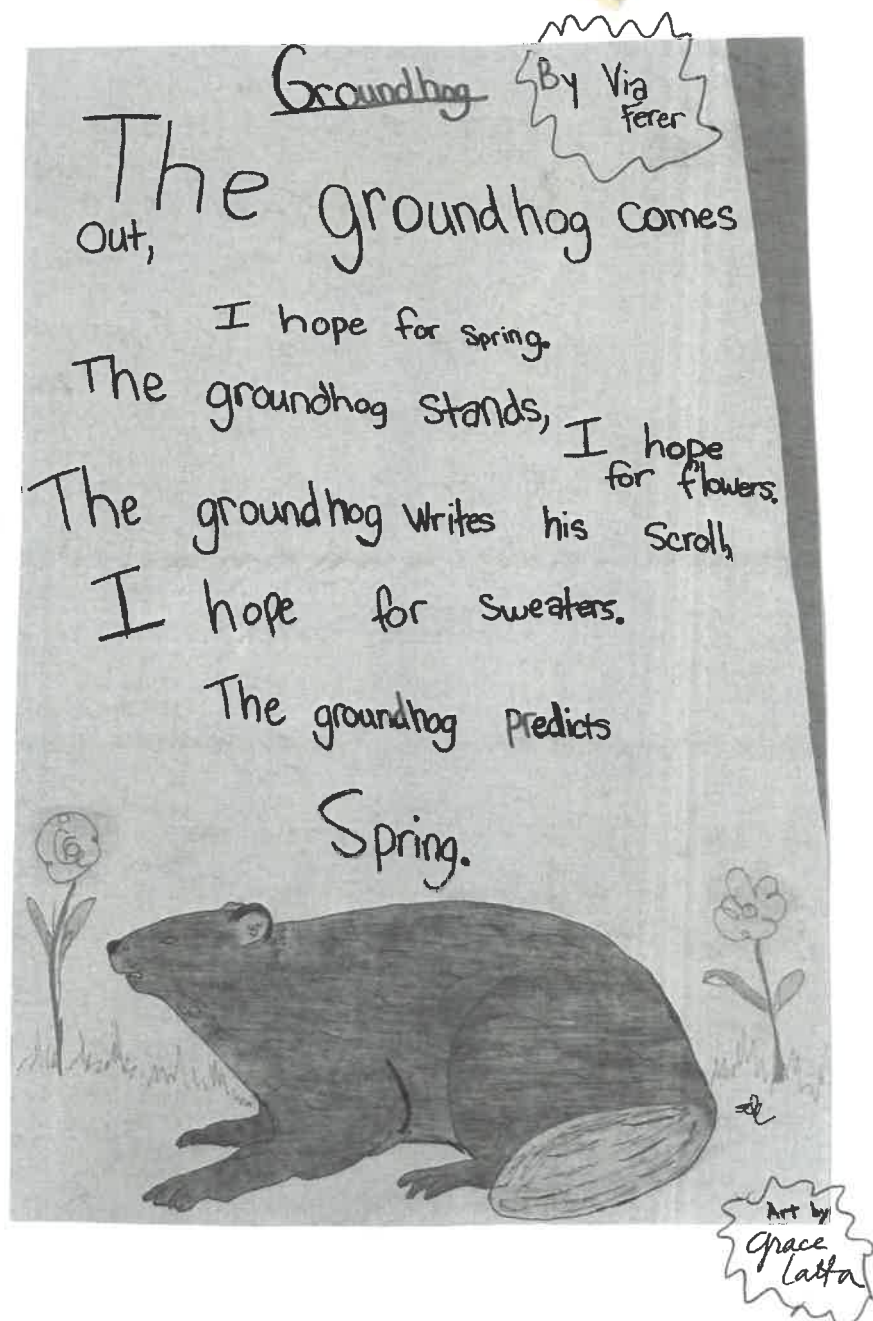 Groundhog
By Via
Ferer
The groundhog comes
Out,
I hope for Spring.
The groundhog stands,
I hope
for flowers.
The groundhog writes his Scroll,
I hope for sweaters.
The groundhog predicts
Spring.
Art by
Grace
Latta